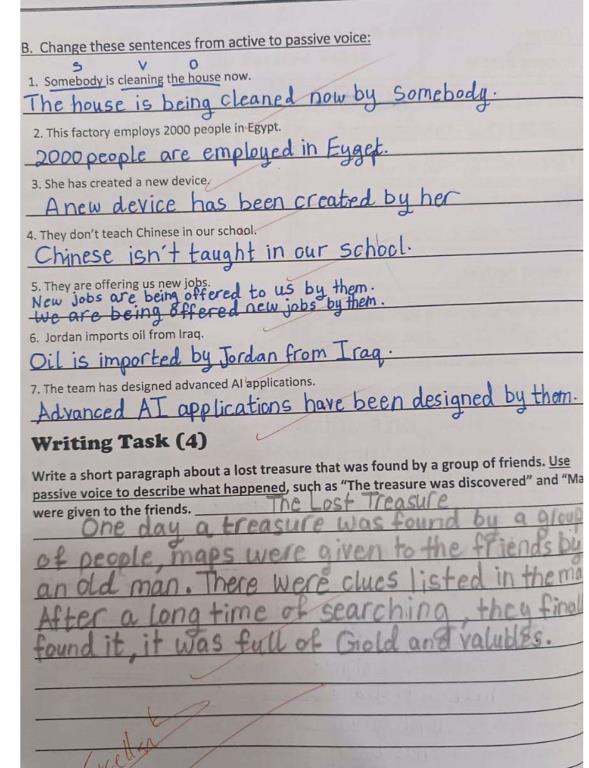 B. Change these sentences from active to passive voice:
S V O
1. Somebody is cleaning the house now.
The house is being cleaned now by Somebody.
2. This factory employs 2000 people in Egypt.
2000 people are employed in Eygept.
3. She has created a new device.
A new device has been created by her
4. They don't teach Chinese in our school.
Chinese isn't taught in our school.
5. They are offering us new jobs.
New jobs are being offered to us by them.
We are being offered new jobs by them.
6. Jordan imports oil from Iraq.
Oil is imported by Jordan from Iraq.
7. The team has designed advanced AI applications.
Advanced AI applications have been designed by them.
Writing Task (4)
Write a short paragraph about a lost treasure that was found by a group of friends. Use
passive voice to describe what happened, such as "The treasure was discovered" and "Ma
were given to the friends.
The Lost Treasure
One day a treasure was found by a group
of people, maps were given to the friends by
an old man. There were clues listed in the ma
After a long time of searching, they finall
found it, it was full of Gold and valubles.